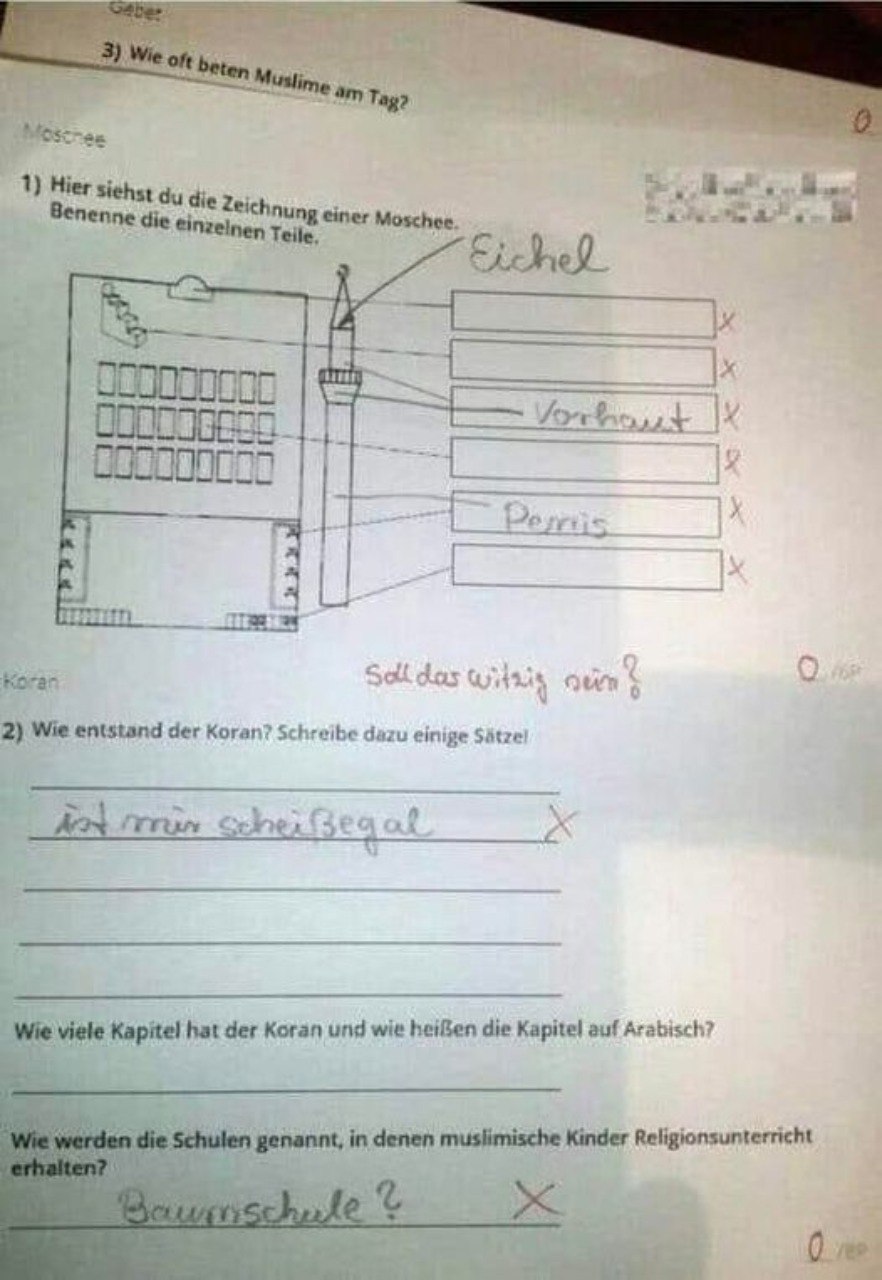 Gebet
3) Wie oft beten Muslime am Tag?
0
Moschee
1) Hier siehst du die Zeichnung einer Moschee.
Benenne die einzelnen Teile.
Eichel
x
x
Vorhaut x
x
Pennis x
x
Soll das witzig sein? 0
Koran
2) Wie entstand der Koran? Schreibe dazu einige Sätze!
ist mir scheißegal x
Wie viele Kapitel hat der Koran und wie heißen die Kapitel auf Arabisch?
Wie werden die Schulen genannt, in denen muslimische Kinder Religionsunterricht
erhalten?
Baumschule? x
0